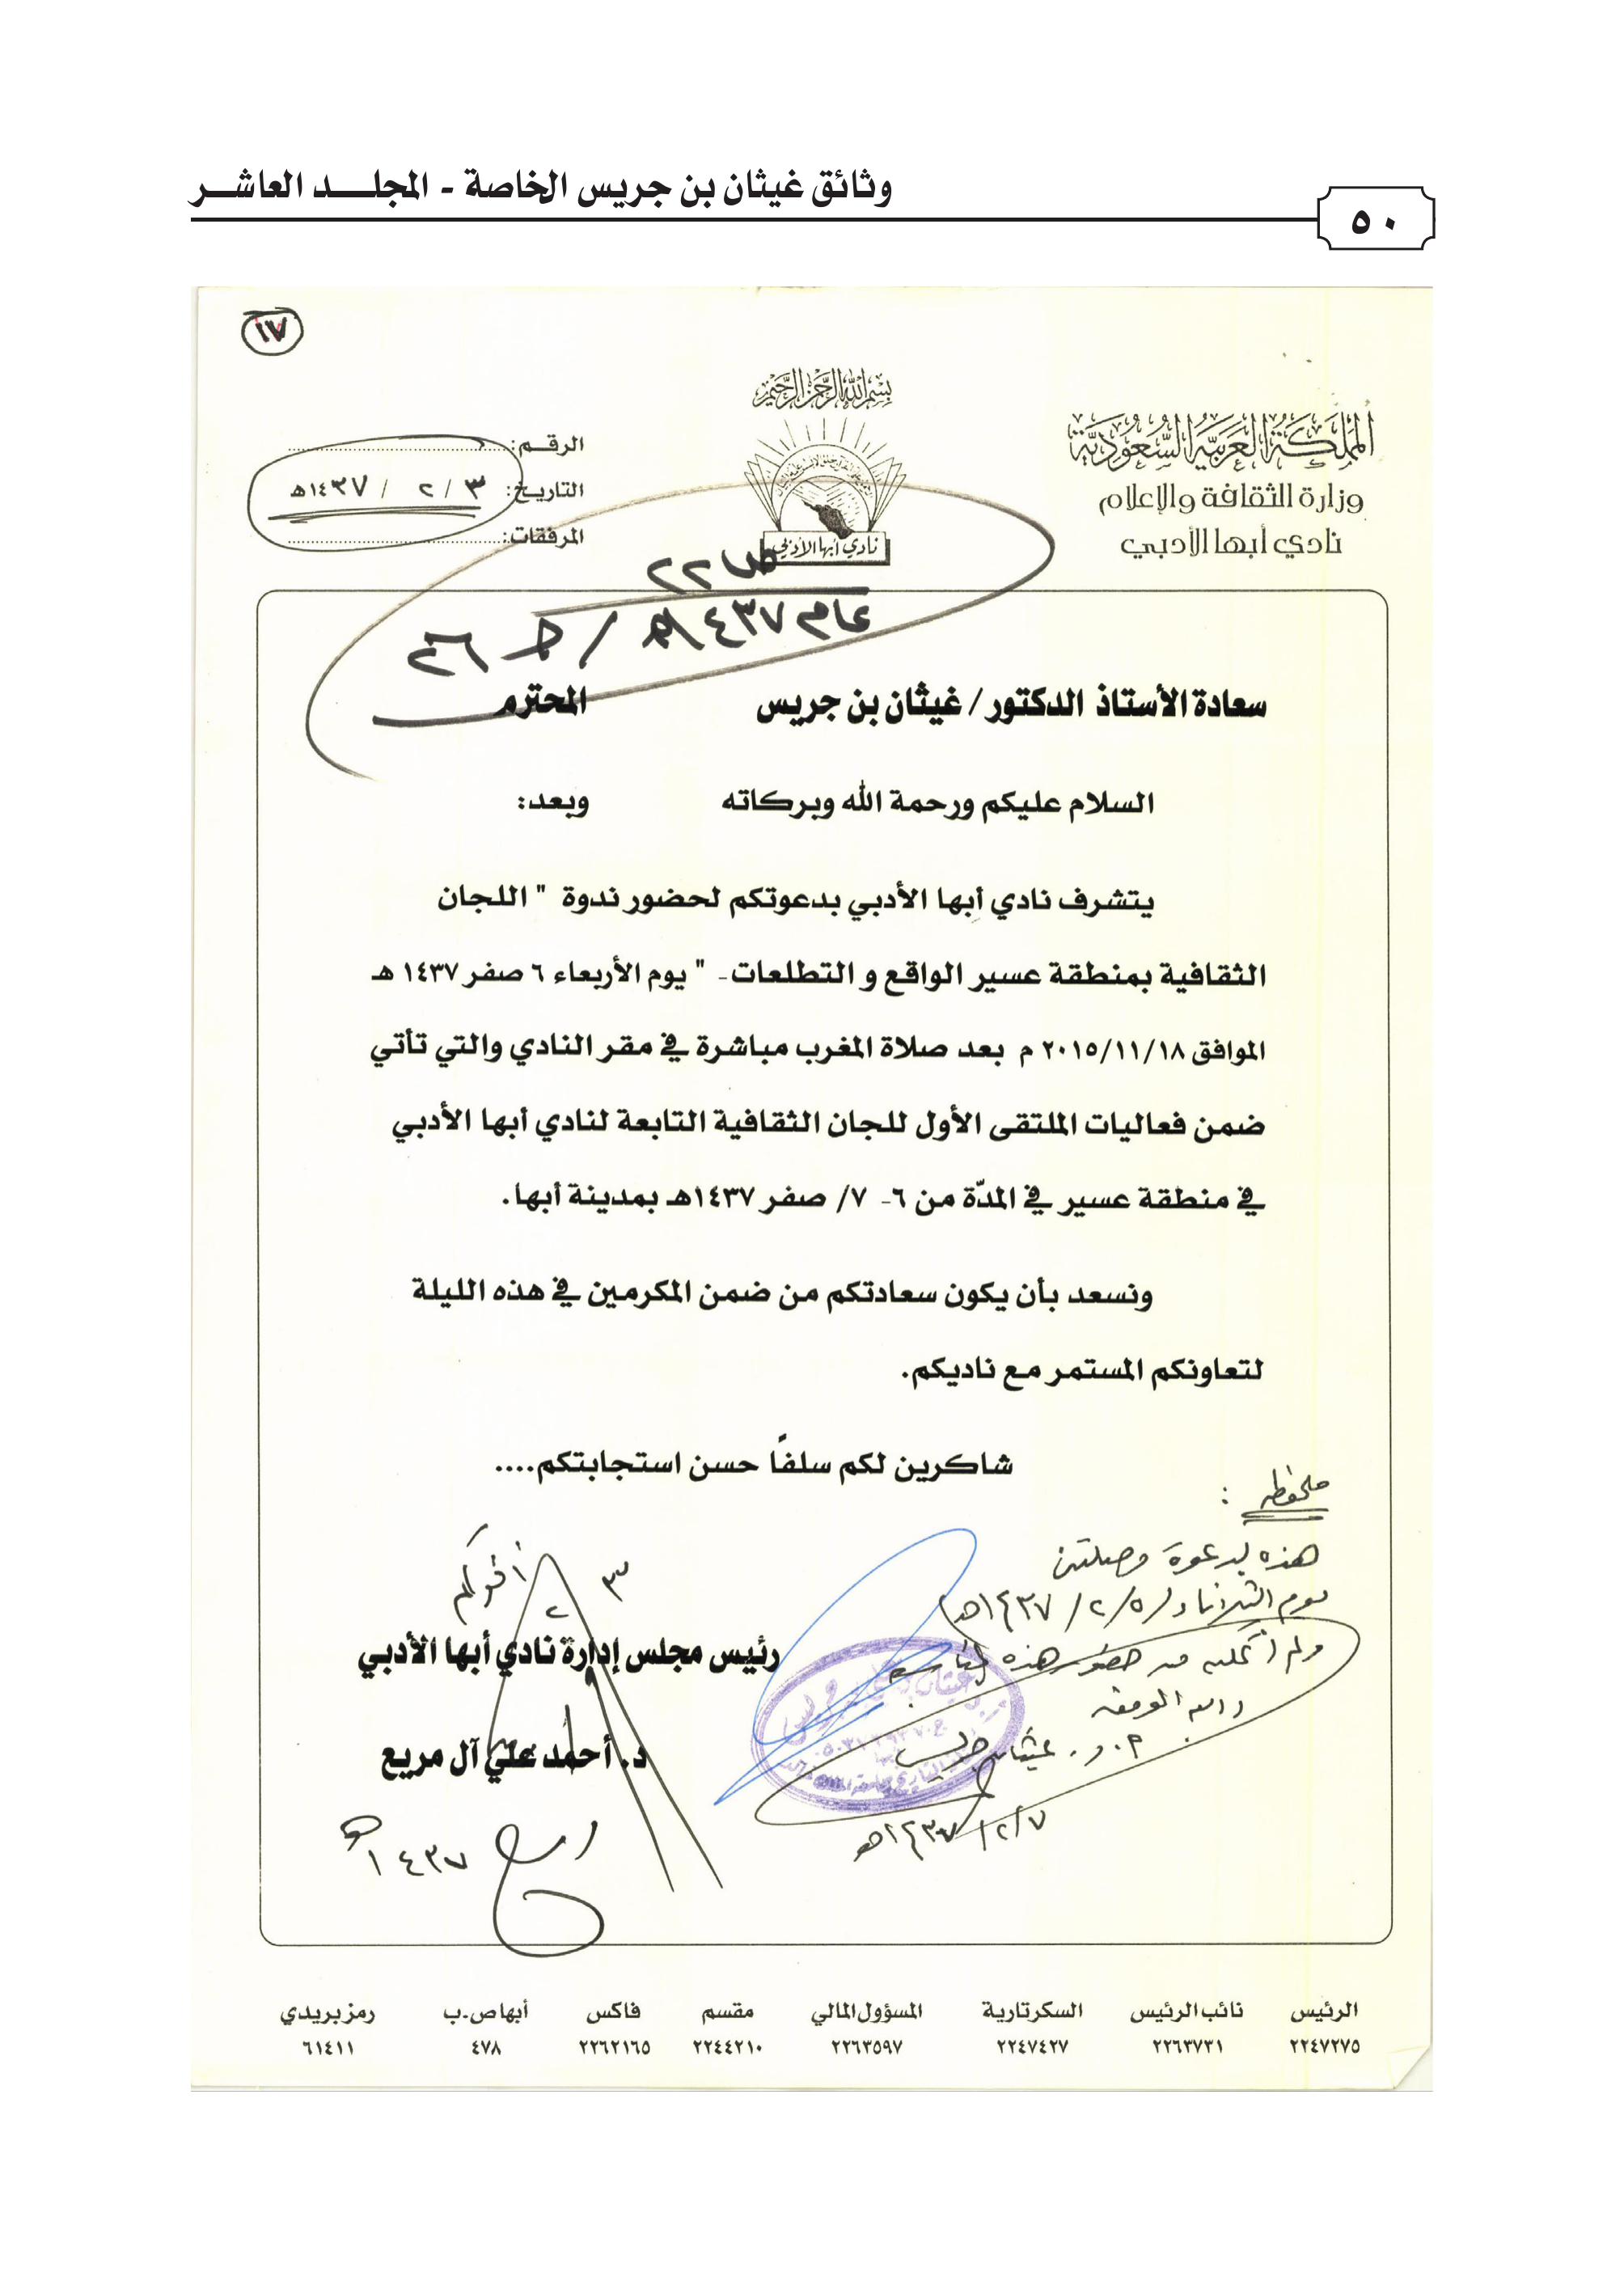 وثائق غيثان بن جريس الخاصة - المجلـــد العاشـــر
٥٠
١٧
بسم الله الرحمن الرحيم
المملكة العربية السعودية
وزارة الثقافة والإعلام
نادي أبها الأدبي
نادي أبها الأدبي
الرقـم:
التاريخ: ٣ / ٢ / ١٤٣٧هـ
المرفقات:
ص ٢٢
عام ١٤٣٧هـ / حـ ٢٦
سعادة الأستاذ الدكتور/ غيثان بن جريس المحترم
السلام عليكم ورحمة الله وبركاته وبعد:
يتشرف نادي أبها الأدبي بدعوتكم لحضور ندوة " اللجان
الثقافية بمنطقة عسير الواقع و التطلعات- " يوم الأربعاء ٦ صفر ١٤٣٧ هـ
الموافق ٢٠١٥/١١/١٨ م بعد صلاة المغرب مباشرة في مقر النادي والتي تأتي
ضمن فعاليات الملتقى الأول للجان الثقافية التابعة لنادي أبها الأدبي
في منطقة عسير في المدّة من ٦- ٧/ صفر ١٤٣٧هـ بمدينة أبها.
ونسعد بأن يكون سعادتكم من ضمن المكرمين في هذه الليلة
لتعاونكم المستمر مع ناديكم.
شاكرين لكم سلفاً حسن استجابتكم....
ملحوظة :
هذه الدعوة وصلتني
يوم الثلاثاء (٥/ ٢/ ١٤٣٧هـ)
ولم أتمكن من حضور هذه المناسبة
والله الموفق
أ. د. غيثان جريس
٧/ ٢/ ١٤٣٧هـ
أخوكم
٣
٢
رئيس مجلس إدارة نادي أبها الأدبي
د. أحمد علي آل مريع
١٤٣٧هـ
الرئيس نائب الرئيس السكرتارية المسؤول المالي مقسم فاكس أبها ص.ب رمز بريدي
٢٢٤٧٢٧٥ ٢٢٦٣٧٣١ ٢٢٤٧٤٢٧ ٢٢٦٣٥٩٧ ٢٢٤٤٢١٠ ٢٢٦٢١٦٥ ٤٧٨ ٦١٤١١